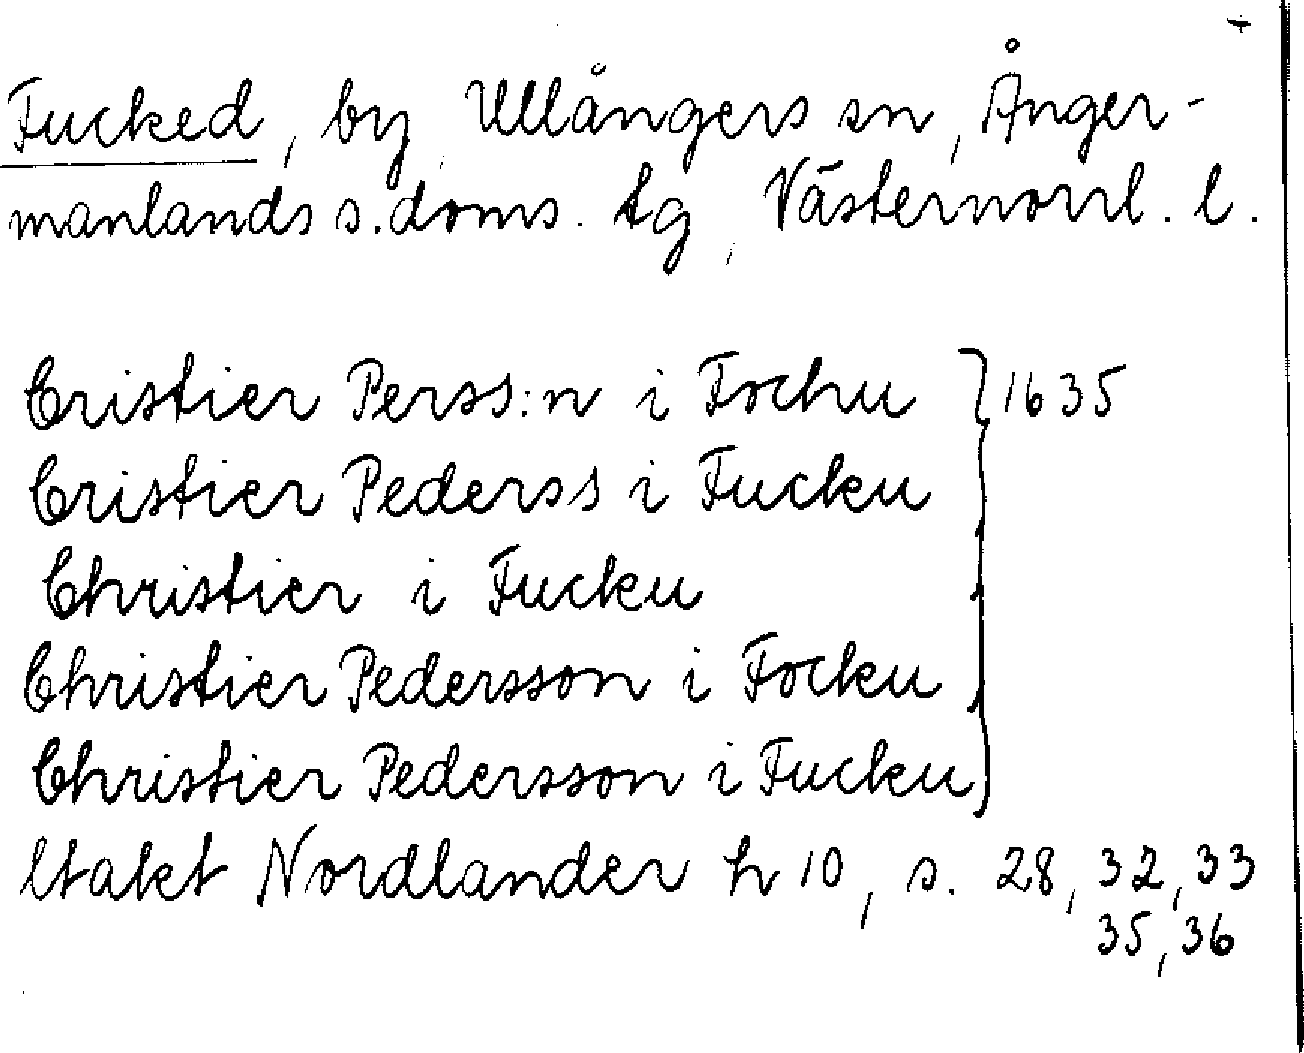 Fucked, by, Ullångers sn, Ånger-
manlands s. doms. tg, Västernorrl. l.
Cristier Perss:n i Fochu } 1635
Cristier Pederss i Fucku
Christier i Fucku
Christier Pedersson i Focku
Christier Pedersson i Fucku
Utakt Nordlander h 10, s. 28, 32, 33
35, 36